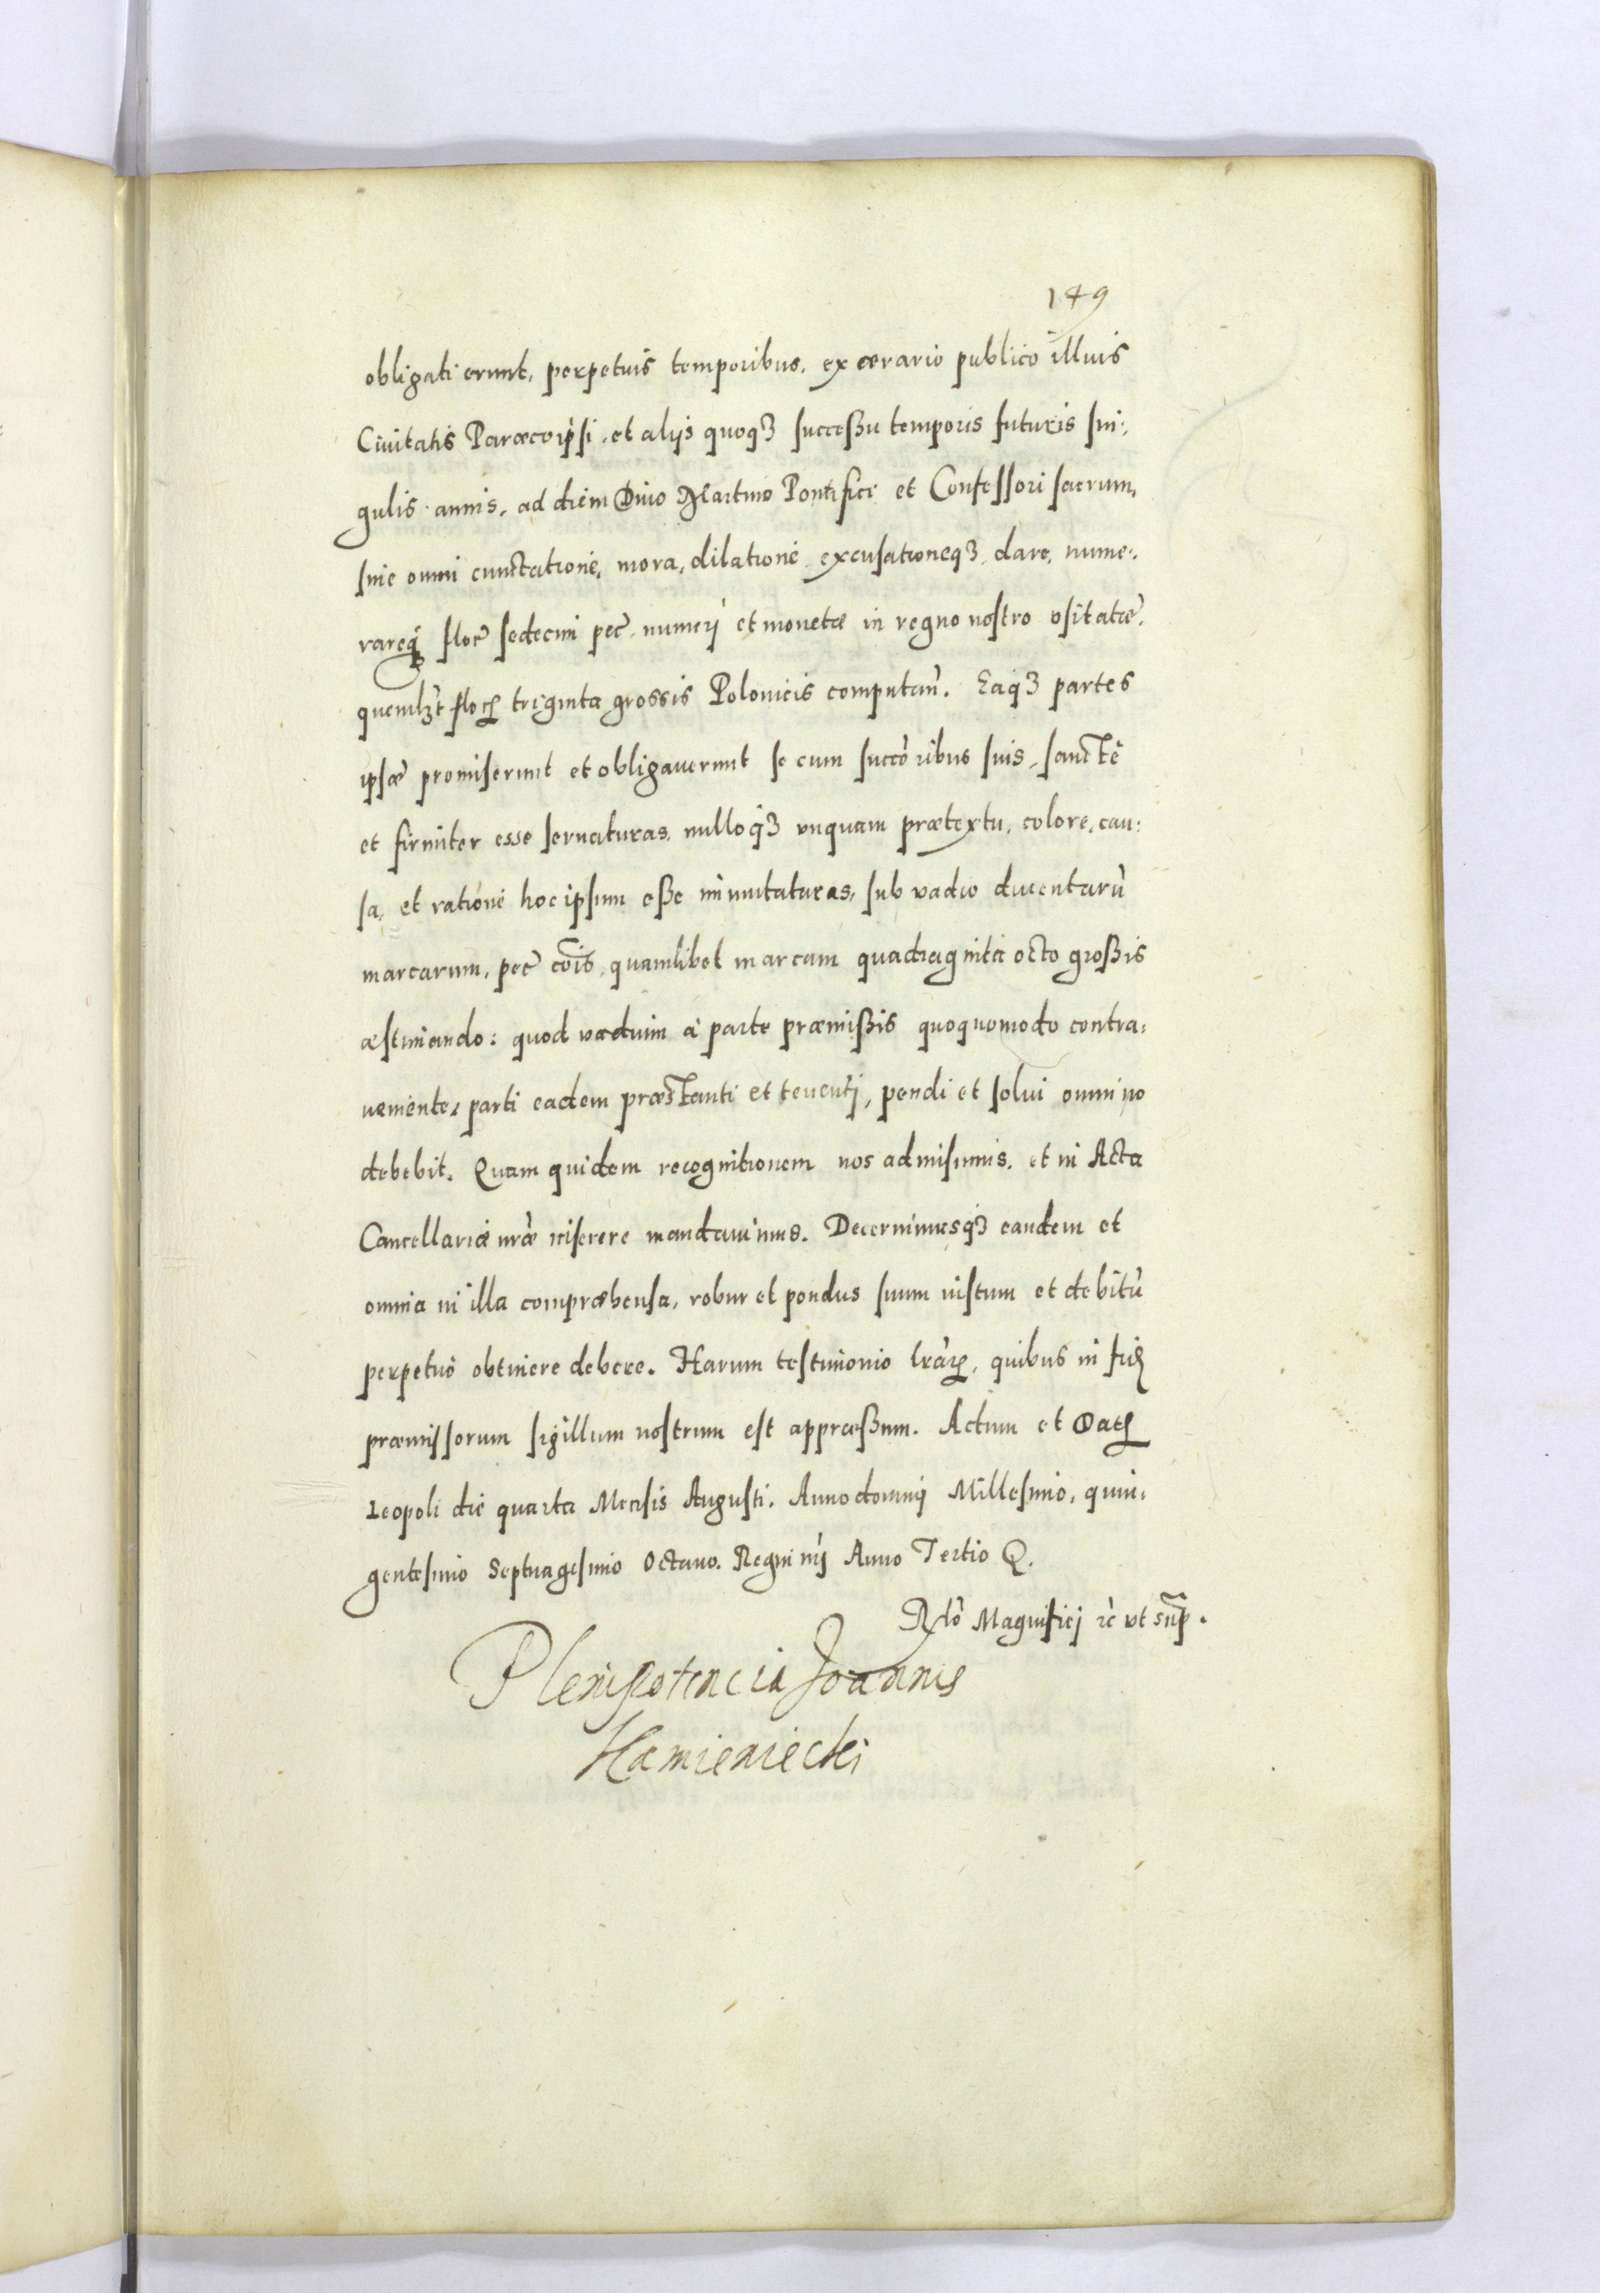 149
obligati erunt, perpetuis temporibus, ex ærario publico illuis
Ciuitatis Paræco ipsi, et alijs quoqꝫ successu temporis futuris sin:
gulis annis, ad diem Diuo Martino Pontifici et Confessori sacrum,
sine omni cunctatione, mora, dilatione, excusationeqꝫ, dare, nume:
rareqꝫ floŕ sedecim peć, numeri et monetæ in regno nostro vsitatæ,
quemlꝫt floꝝ triginta grossis Polonicis computań. Eaqꝫ partes
ipsæ promiserunt et obligauerunt se cum succõribus suis, sanctè
et firmiter esse seruaturas, nulloqꝫ vnquam prætextu, colore, cau:
sa, et ratione hoc ipsum esse immutaturas, sub vadio ducentarũ
marcarum, peć cõis, quamlibet marcam quadraginta octo grossis
æstimando: quod vadium à parte præmissis quoquomodo contra:
ueniente, parti eadem præstanti et tenenti, pendi et solui omnino
debebit. Quam quidem recognitionem nos admisimus, et in Acta
Cancellariæ nr̃æ inserere mandauimus. Decernimusqꝫ eandem et
omnia in illa compræhensa, robur et pondus suum iustum et debitũ
perpetuò obtinere debere. Harum testimonio lr̃arꝝ, quibus in fidꝫ
præmissorum sigillum nostrum est appræssum. Actum et Datꝝ
Leopoli die quarta Mensis Augusti. Anno domini Millesimo, quin:
gentesimo Septuagesimo Octauo. Regni nr̃i Anno Tertio
Rełõ Magnifici ꝛc vt sup̃.
Plenipotencia Joannis
Kamieniecki